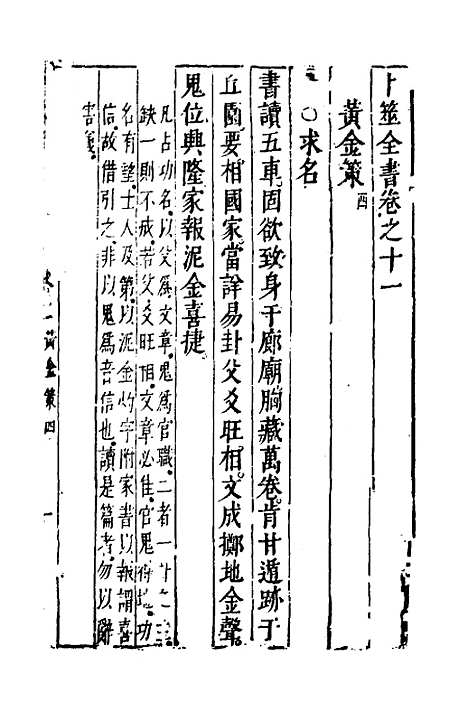 卜筮全書卷之十一
黃金策 四
○求名
書讀五車固欲致身于廊廟胸藏萬卷肯甘遁跡于
丘園要相國家當詳易卦父爻旺相文成擲地金聲
鬼位興隆家報泥金喜捷
凡占功名以父爲文章鬼爲官職二者一
缺一則不成若父爻旺相文章必佳官鬼得地功
名有望士人及第以泥金帖字附家書以報謂喜
信故借引之非以鬼爲音信也讀是篇者勿以辭
害義
黃金策四